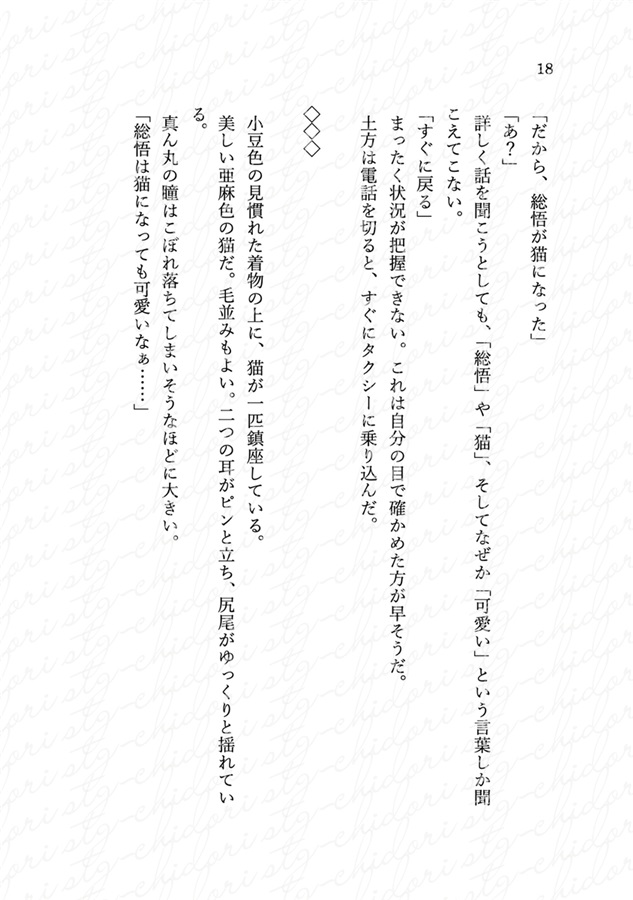 18
「だから、総悟が猫になった」
「あ？」
　詳しく話を聞こうとしても、「総悟」や「猫」、そしてなぜか「可愛い」という言葉しか聞
こえてこない。
「すぐに戻る」
　まったく状況が把握できない。これは自分の目で確かめた方が早そうだ。
　土方は電話を切ると、すぐにタクシーに乗り込んだ。
◇◇◇
　小豆色の見慣れた着物の上に、猫が一匹鎮座している。
　美しい亜麻色の猫だ。毛並みもよい。二つの耳がピンと立ち、尻尾がゆっくりと揺れてい
る。
　真ん丸の瞳はこぼれ落ちてしまいそうなほどに大きい。
「総悟は猫になっても可愛いなぁ……」